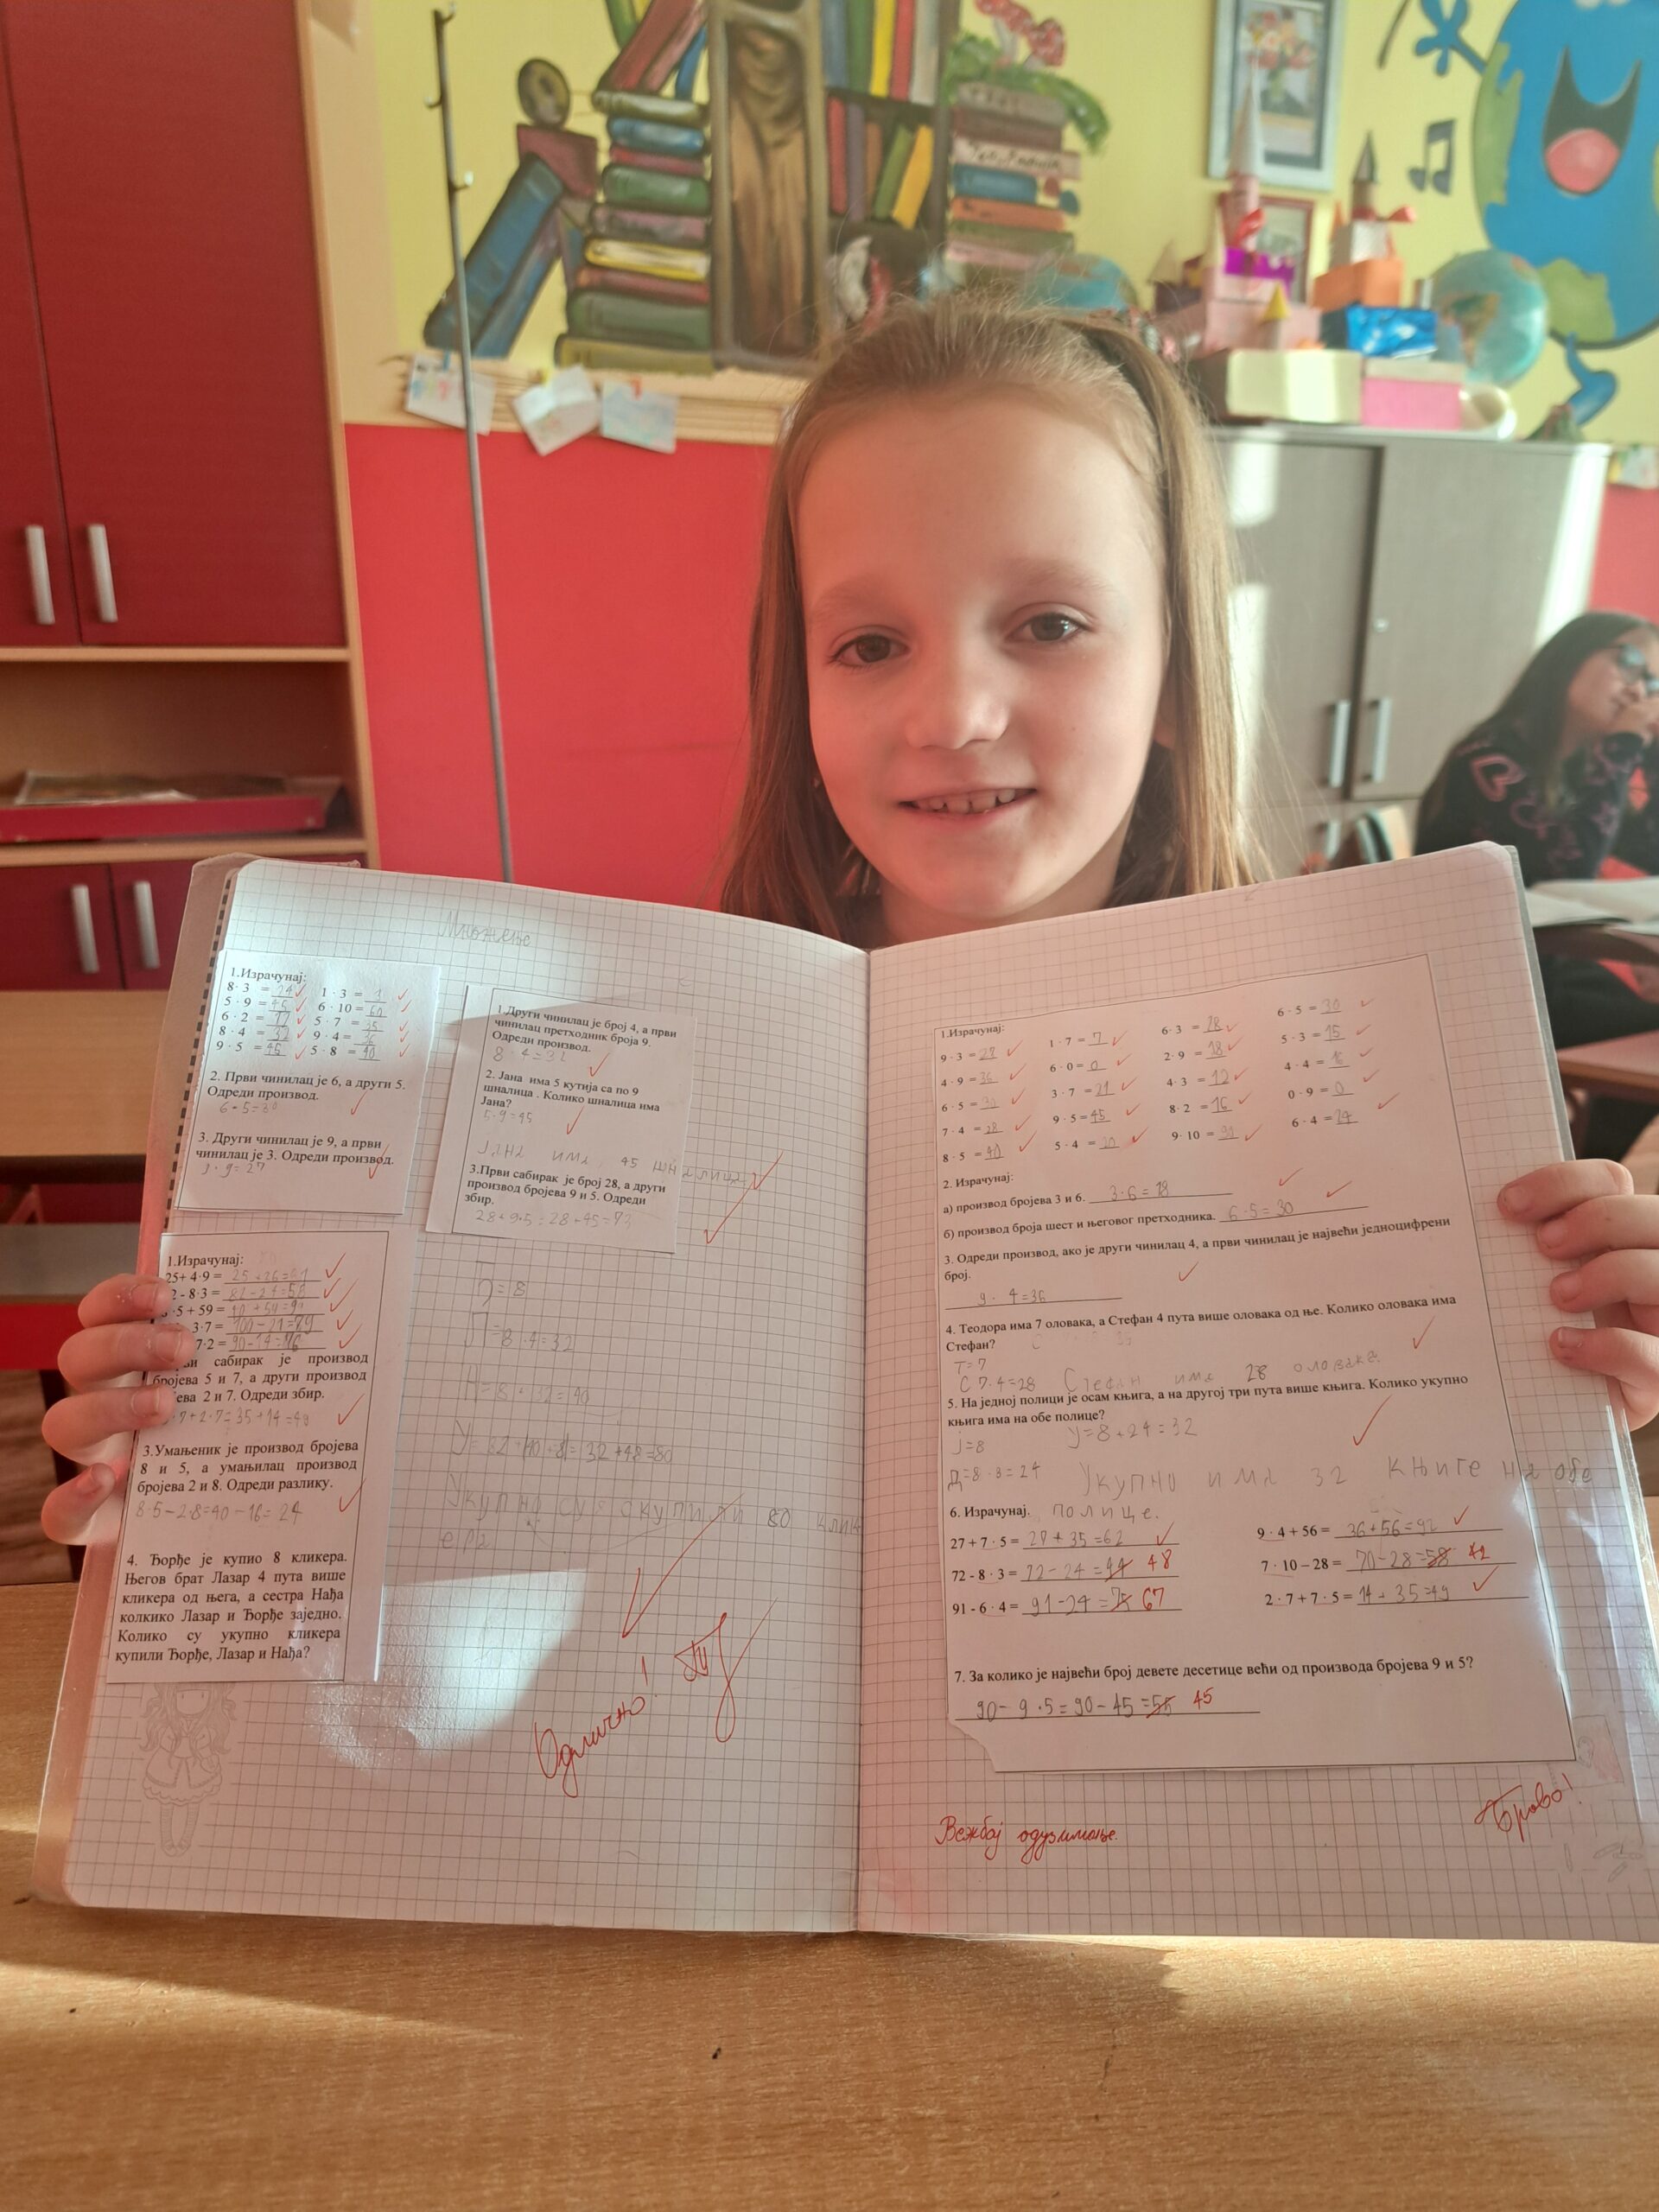 Множење
1.Израчунај:
8· 3 = 24 1 · 3 = 3
5 · 9 = 45 6 · 10 = 60
6 · 2 = 12 5 · 7 = 35
8 · 4 = 32 9 · 4 = 36
9 · 5 = 45 5 · 8 = 40
2. Први чинилац је 6, а други 5.
Одреди производ.
6·5=30
3. Други чинилац је 9, а први
чинилац је 3. Одреди производ.
3·9=27
1.Други чинилац је број 4, а први
чинилац претходник броја 9.
Одреди производ.
8·4=32
2. Јана има 5 кутија са по 9
шналица . Колико шналица има
Јана?
5·9=45
Јана има 45 шналица
3.Први сабирак је број 28, а други
производ бројева 9 и 5. Одреди
збир.
28+9·5=28+45=73
1.Израчунај:
25+ 4·9 = 25+36=61
2 - 8·3 = 82-24=58
·5 + 59 = 40+59=99
3·7 = 100-21=79
7·2 = 90-14=76
сабирак је производ
бројева 5 и 7, а други производ
2 и 7. Одреди збир.
·7+2·7=35+14=49
3.Умањеник је производ бројева
8 и 5, а умањилац производ
бројева 2 и 8. Одреди разлику.
8·5-2·8=40-16=24
4. Ђорђе је купио 8 кликера.
Његов брат Лазар 4 пута више
кликера од њега, а сестра Нађа
колкико Лазар и Ђорђе заједно.
Колико су укупно кликера
купили Ђорђе, Лазар и Нађа?
Ђ=8
Л=8·4=32
Н=8+32=40
У=32+40+8=32+48=80
Укупно су 80 клик
ера
Одлично!
1.Израчунај:
9 · 3 = 27 1 · 7 = 7 6 · 3 = 18 6 · 5 = 30
4 · 9 = 36 6 · 0 = 0 2 · 9 = 18 5 · 3 = 15
6 · 5 = 30 3 · 7 = 21 4 · 3 = 12 4 · 4 = 16
7 · 4 = 28 9 · 5 = 45 8 · 2 = 16 0 · 9 = 0
8 · 5 = 40 5 · 4 = 20 9 · 10 = 90 6 · 4 = 24
2. Израчунај:
а) производ бројева 3 и 6. 3·6=18
б) производ броја шест и његовог претходника. 6·5=30
3. Одреди производ, ако је други чинилац 4, а први чинилац је највећи једноцифрени
број.
9·4=36
4. Теодора има 7 оловака, а Стефан 4 пута више оловака од ње. Колико оловака има
Стефан?
Т=7
С 7·4=28 Стефан има 28 оловака.
5. На једној полици је осам књига, а на другој три пута више књига. Колико укупно
књига има на обе полице?
Ј=8 У=8+24=32
Д=8·3=24 Укупно има 32 књиге на обе
полице.
6. Израчунај.
27 + 7 · 5 = 27+35=62 9 · 4 + 56 = 36+56=92
72 - 8 · 3 = 72-24=44 48 7 · 10 – 28 = 70-28=58 42
91 - 6 · 4 = 91-24=75 67 2 · 7 + 7 · 5 = 14+35=49
7. За колико је највећи број девете десетице већи од производа бројева 9 и 5?
90-9·5=90-45=55 45
Вежбај одузимање.
Браво!